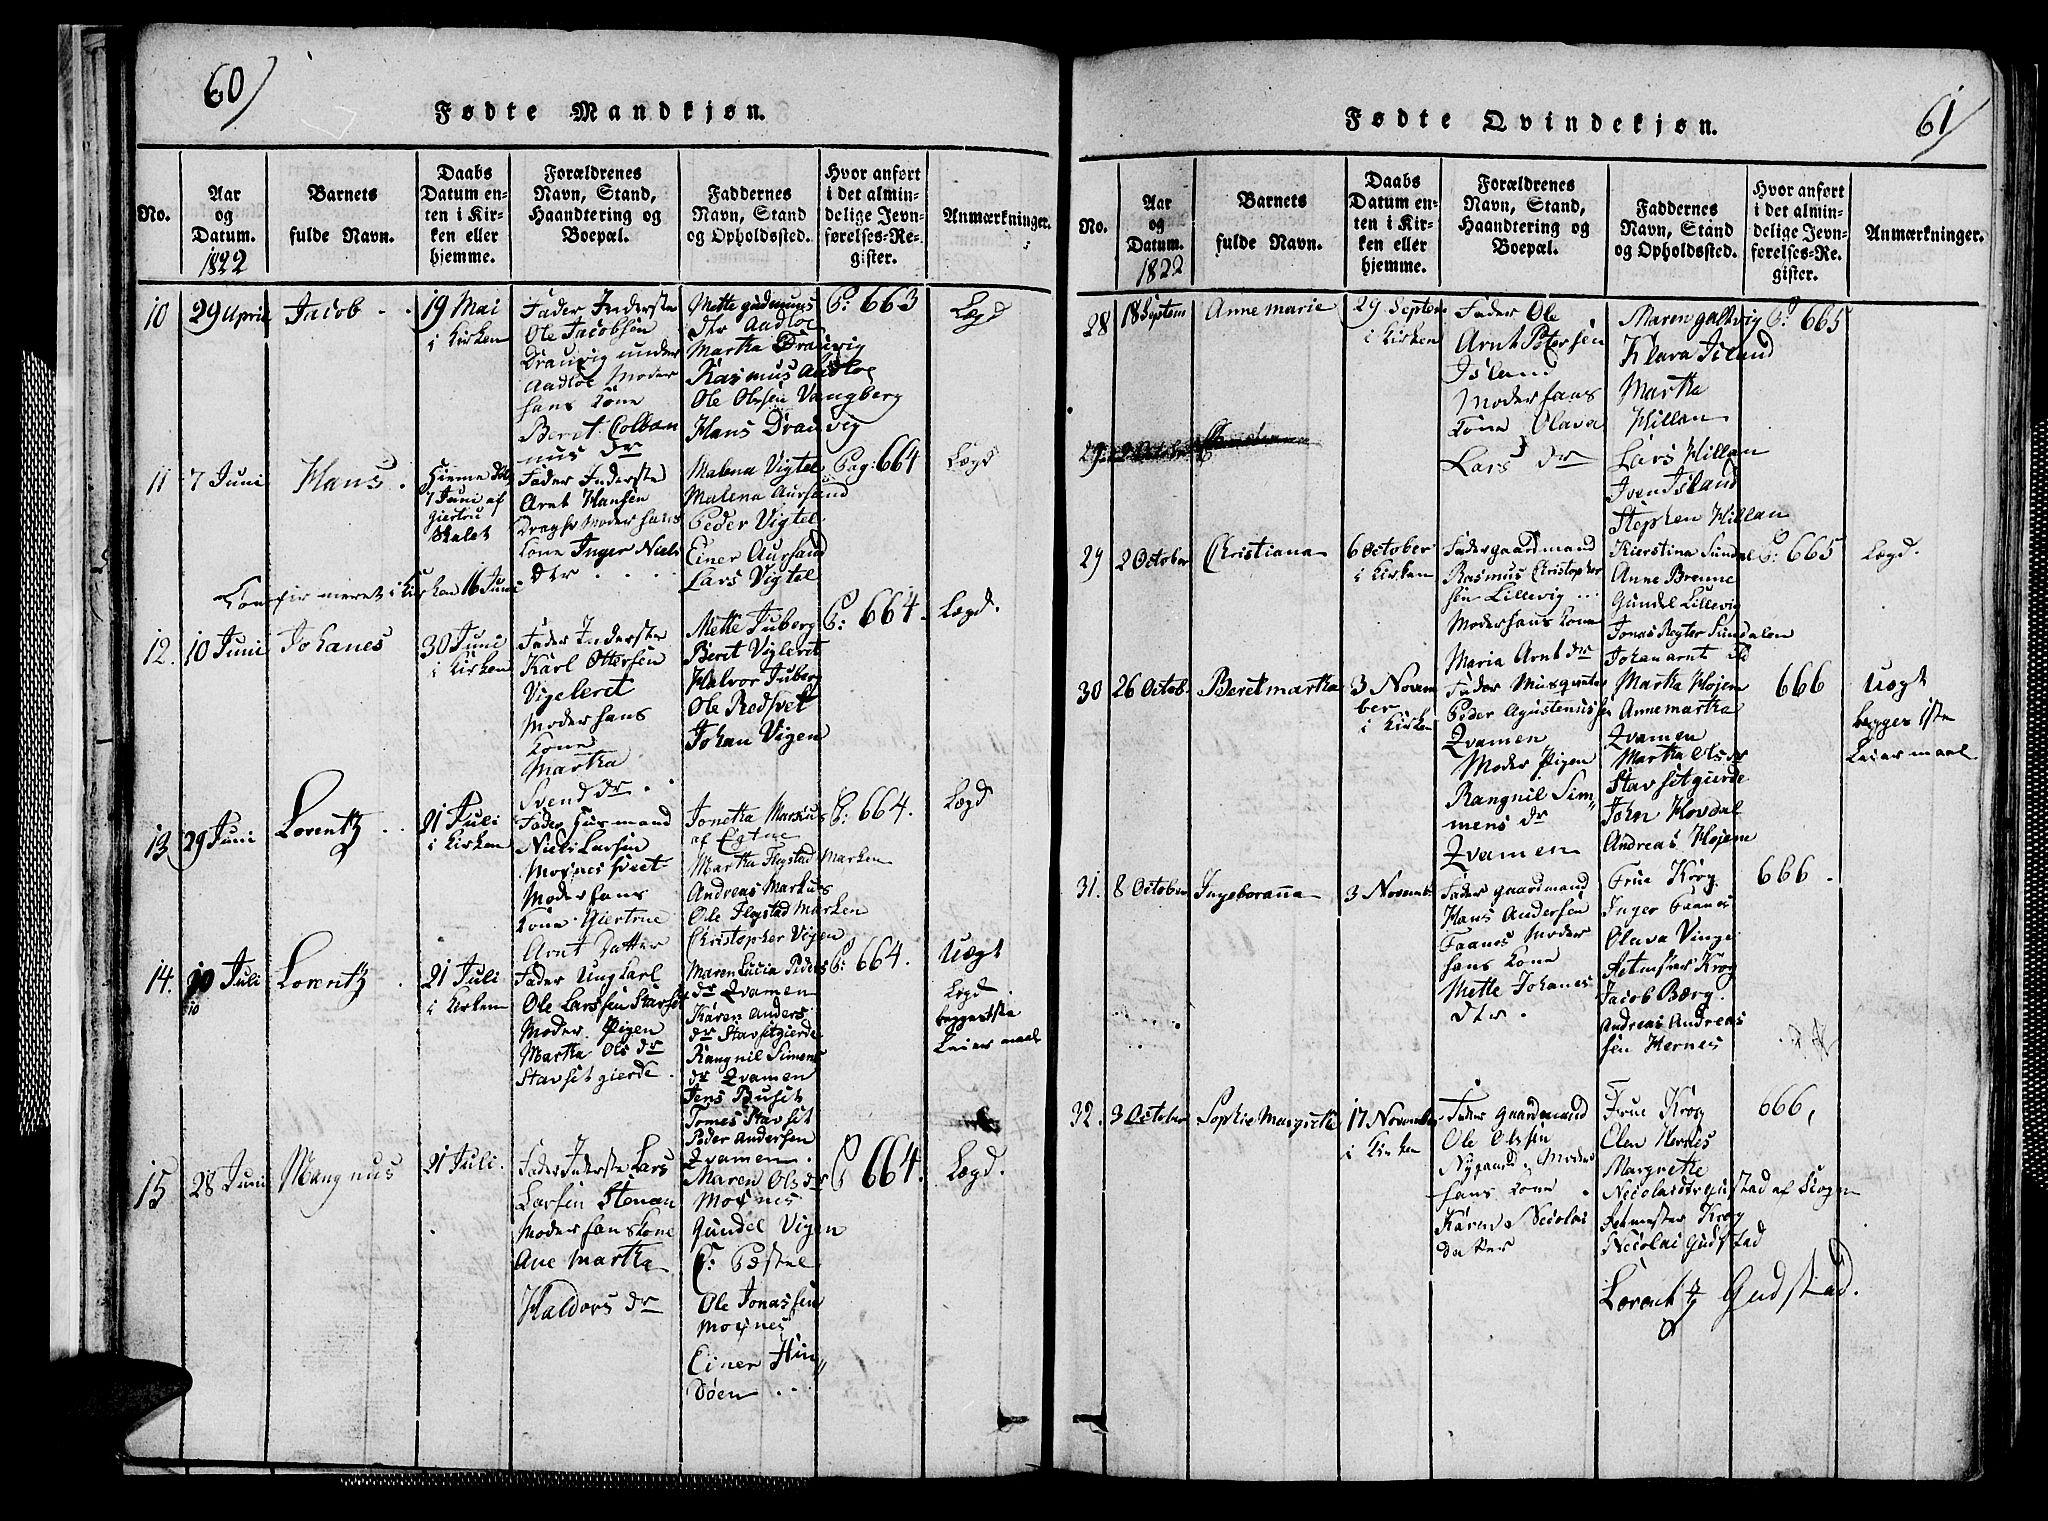 60/
Fødte Mandkjøn.
No.
Aar
og
Datum.
1822
Barnets
fulde Navn.
Daabs
Datum en-
ten i Kir-
ken eller
hjemme.
Forældrenes
Navn, Stand,
Haandtering og
Boepæl.
Faddernes
Navn, Stand
og Opholdssted.
Hvor anført
i det almin-
delige Jevn-
førelses-Re-
gister.
Anmærkninger.
10
29 April
Jacob
19 Mai
i Kirken
Fader Inderste
Ole Jacobsen
Drauvig under
Aadloe Moder
hans Kone
Beret Colban
nus dr
Mette gudmuns
dtr Aadloe
Martha Drauvig
Rasmus Aadloe
Ole Olssen Vangberg
Hans Drauvig
P: 663
Lægd
11
7 Juni
Hans
Hieme
7 Juni af
giertru
Confirmeret i Kirken 16 Juni
Fader Inderste
Arnt Hansen
Moder hans
Kone Inger Niels
dtr
Malena Vigtel
Malena Aursand
Peder Vigtel
Einer Aursand
Lars Vigtel
Pag: 664
Lægd
12.
10 Juni
Johanes
30 Juni
i Kirken
Fader Inderste
Karl Ottersen
Vigeleret
Moder hans
Kone
Martha
Svend dr
Mette Juberg
Beret Vigleret
Halvor Juberg
Ole Rødsvet
Johan Vigen
P: 664.
Lægd.
13
29 Juni
Lorentz
21 Juli
i Kirken
Fader Husmand
Niels Larsen
Moxnes
Moder hans
Kone Giertrue
Arnt Datter
Jonetta Markus
af Egtne
Martha Flogstad Marken
Andreas Markus
Ole Flogstad Marken
Christopher Vigen
P: 664.
Lægd
14.
10 Juli
10
Lorentz
21 Juli
i Kirken
Fader Ungkarl
Ole Larssen Stavset
Moder Pigen
Martha Ols dr
Stavsetgierde
Maren Lucia Peders
dr Qvamen
Karen Anders
dr Stavsetgierde
Rangnil Simens
dr Qvamen
Jens Busit
Tomes Stavsit
Peder Andersen
Qvamen
P: 664.
Uægt
Lægd
begges 1ste
Leiermaal
15
28 Juni
Mangnus
21 Juli.
Fader Inderste Lars
Larsen Stenan
Moder hans Kone
Ane Martha
Haldors dr
Maren Ols dr
Moxnes
Gundel Vigen
C: Pæstel
Ole Jonassen
Moxnes
Einer Hin
døen
P 664.
Lægd.
61/
Fødte Qvindekjøn.
No.
Aar
og
Datum.
1822
Barnets
fulde Navn.
Daabs
Datum en-
ten i Kir-
ken eller
hjemme.
Forældrenes
Navn, Stand,
Haandtering og
Boepæl.
Faddernes
Navn, Stand
og Opholdssted.
Hvor anført
i det almin-
delige Jevn-
førelses-Re-
gister.
Anmærkninger.
28
18 Septem
Anne marie
29 Septem
i Kirken
Fader Ole
Arnt Petersen
Island
Moder hans
Kone Olava
Lars dr
Maren galtvig
Klara Island
Martha
Hillan
Lars Hillan
Iven Island
Stephen Hillan
P: 665
29
29
2 October
Christiana
6 October
i Kirken
Fader gaardmand
Rasmus Christopher
sen Lillevig
Moder hans Kone
Maria Arnt dr
Kierstina Sundal
Anne Brenne
Gundel Lillevig
Jonas Røgter Sundalen
Johan arnt
P: 665
Lægd.
30
26 Octob
Beret martha
3 Novem
ber
i Kirken
Fader Musqveter
Peder Agustenussen
Qvamen
Moder Pigen
Rangnil Sim
mens dr
Qvamen
Martha Højem
Anne martha
Qvamen
Martha Ols dr
Stavsetgierde
John Hovdal
Andreas Højem
666
Uægt
begges 1ste
Leiermaal
31.
8 October
Ingeboranna
3 Novemb
Fader gaardmand
Hans Andersen
Faanes Moder
hans Kone
Mette Johanes
dtr.
Frue Krog
Inger Faanes
Olava Vinge
Retmester Krog
Jacob Berg.
Andreas Andreas
sen Hernes
666.
32.
3 October
Sophie Margrethe
17 November
i Kirken
Fader Gaardmand
Ole Olssen
Nygaard Moder
hans Kone
Karen Nicolai
datter
Frue Krog
Elen Hernes
Margrethe
Nicolaidtr gudstad af Skogen
Retmester Krog
Nicolai Gudstad
Lorentz Gudstad.
666,